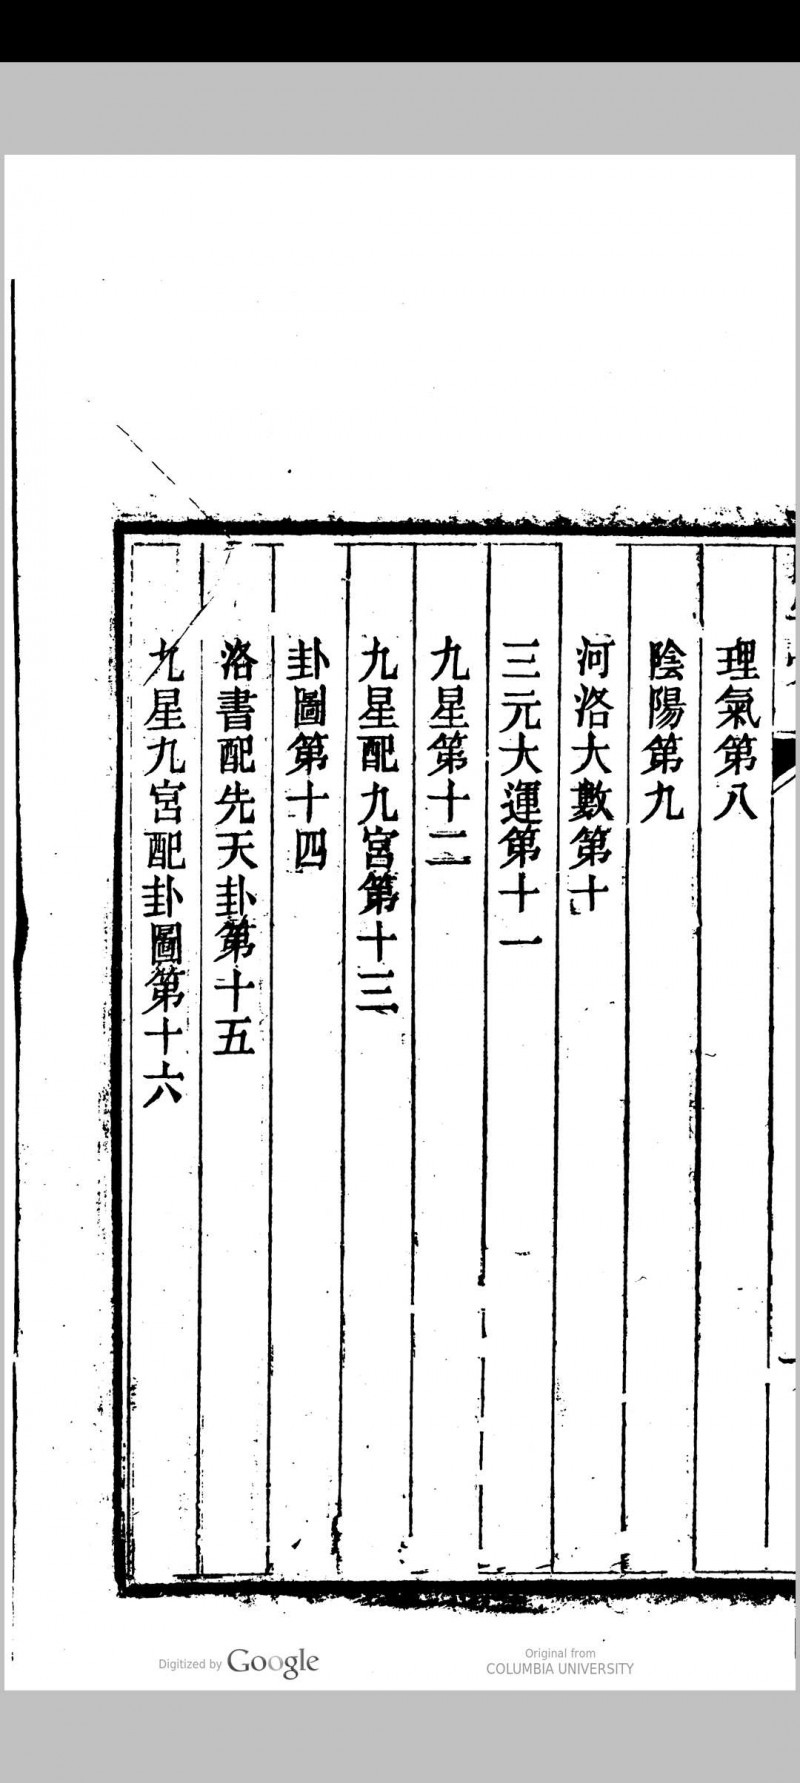 理氣第八
陰陽第九
河洛大數第十
三元大運第十一
九星第十二
九星配九宮第十三
卦圖第十四
洛書配先天卦第十五
九星九宮配卦圖第十六
Digitized by Google
Original from
COLUMBIA UNIVERSITY